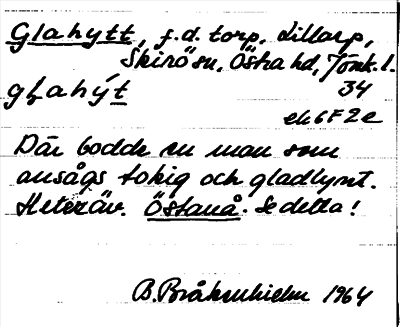 Glahytt, f.d. torp, Lillarp,
Skirö sn, Östra hd, Jönk. l.
glahýt 34
ek 6F2e
Där bodde en man som
ansågs tokig och gladlynt.
Heter äv. Östanå. Se detta!
B. Bråkenhielm 1964